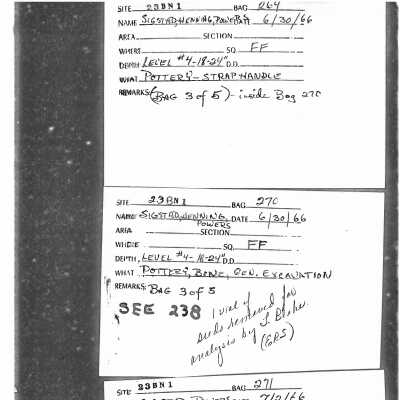 SITE 23BN1 BAG 264
NAME SIGSTAD, HENNING, POWERS DATE 6/30/66
AREA SECTION
WHERE SQ. FF
DEPTH LEVEL #4-18-24" D.D.
WHAT POTTERY - STRAP HANDLE
REMARKS: (BAG 3 of 5) - inside Bag 270
SITE 23BN1 BAG 270
NAME SIGSTAD, HENNING, POWERS DATE 6/30/66
AREA SECTION
WHERE SQ. FF
DEPTH LEVEL #4-18-24" D.D.
WHAT POTTERY, BONE, GEN. EXCAVATION
REMARKS: BAG 3 of 5
SEE 238
1 vial of
seeds removed for
analysis by L.
SITE 23BN1 BAG 271
7/2/66